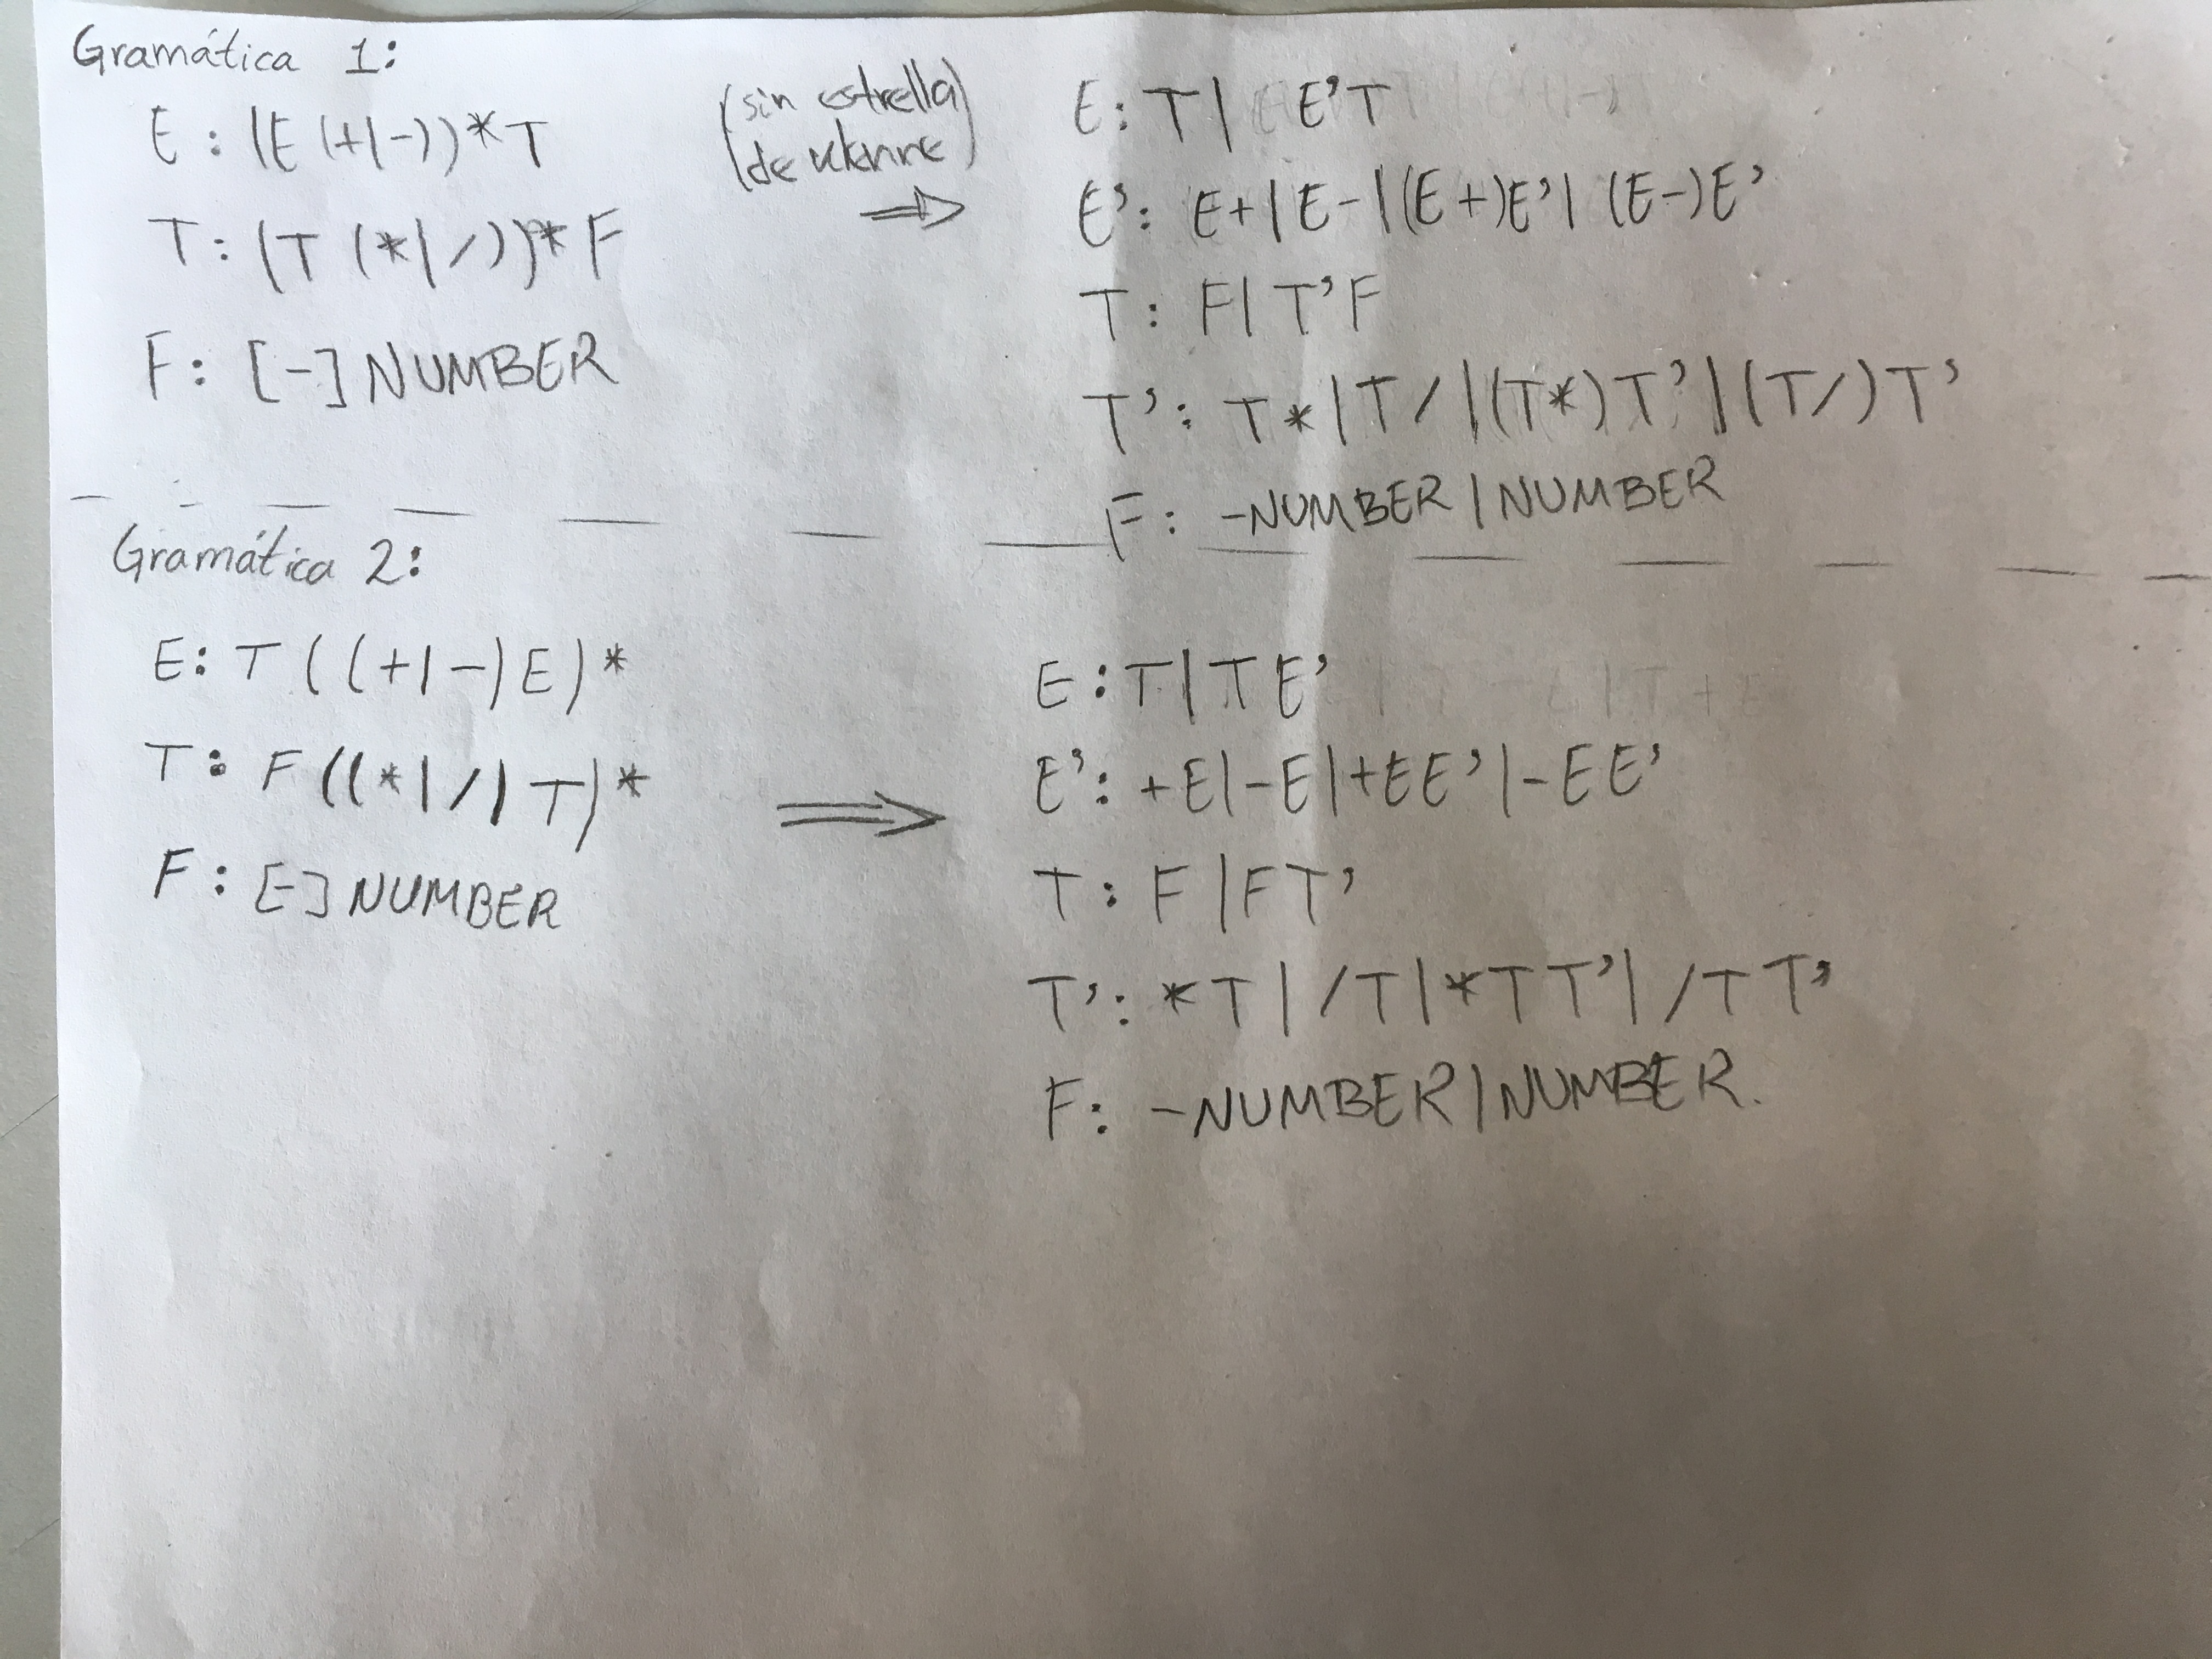 Gramática 1:
E: (E (+|-))*T
T: (T (*|/))*F
F: [-] NUMBER
(sin estrella
de kleene)
⇒
E: T | E'T
E': E+|E-|(E+)E'|(E-)E'
T: F|T'F
T': T*|T/|(T*)T'|(T/)T'
F: -NUMBER|NUMBER
Gramática 2:
E: T ((+|-)E)*
T: F ((*|/)T)*
F: [-] NUMBER
⇒
E: T|TE'
E': +E|-E|+EE'|-EE'
T: F|FT'
T': *T|/T|*TT'|/TT'
F: -NUMBER|NUMBER.